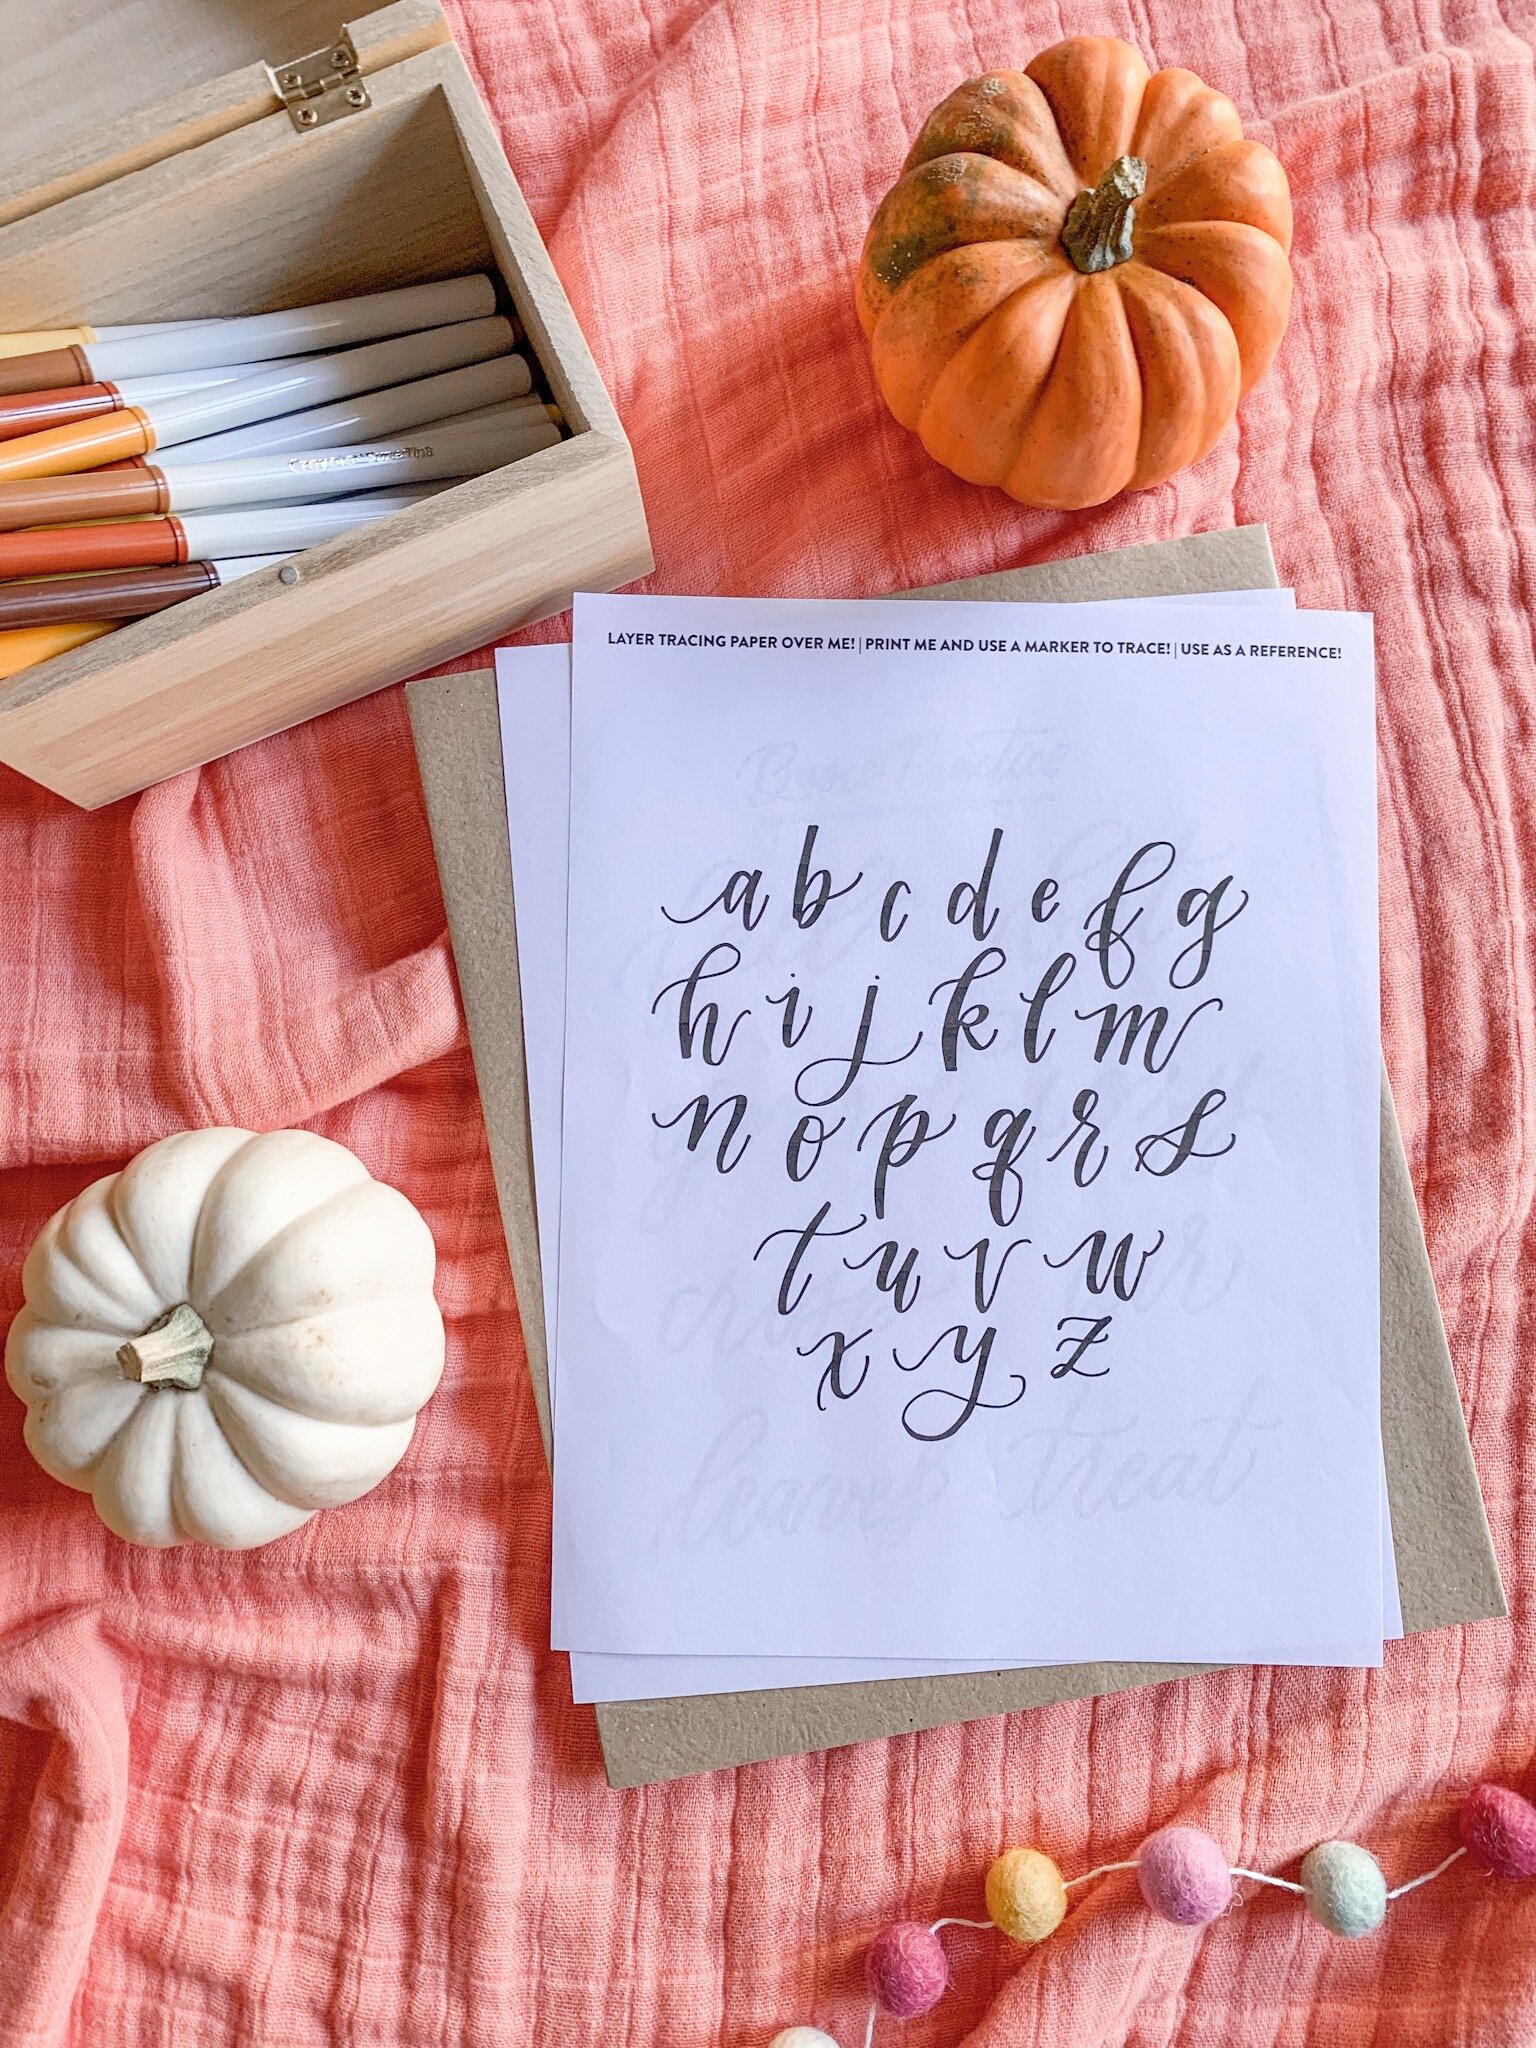 Crayola SuperTips
LAYER TRACING PAPER OVER ME! | PRINT ME AND USE A MARKER TO TRACE! | USE AS A REFERENCE!
a b c d e f g
h i j k l m
n o p q r s
t u v w
x y z
leaves treat